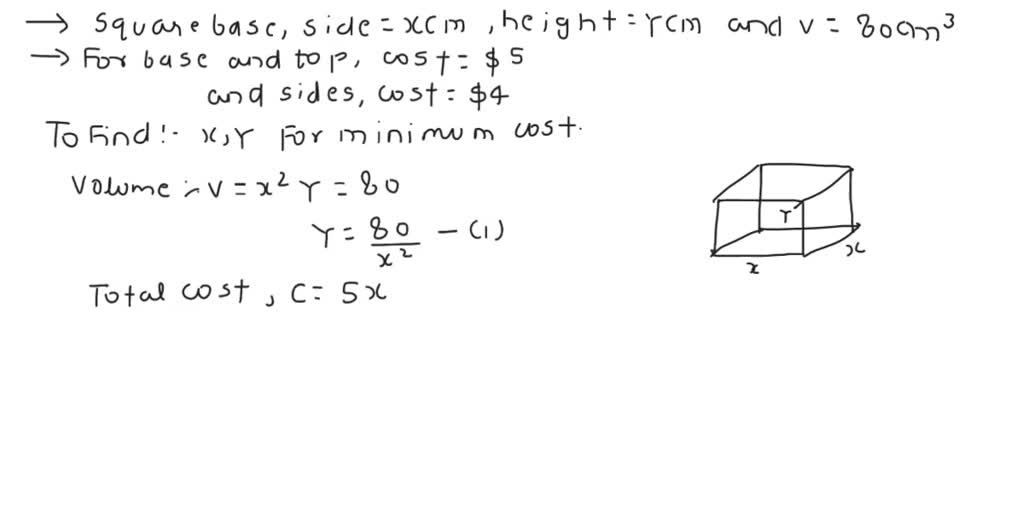 → Square base, side = xcm, height = Ycm and V = 80cm³
→ For base and top, cost = $5
and sides, cost = $4
To Find :- x, Y For minimum cost.
Volume :- V = x² Y = 80
Y = 80/x² - (1)
Y
x
x
Total cost, C = 5x